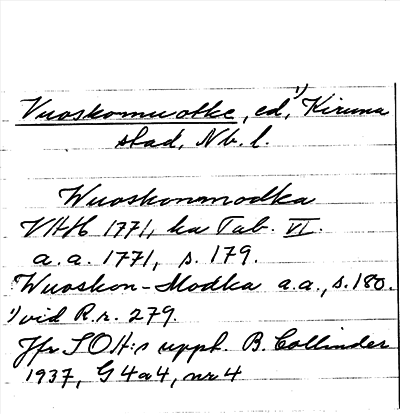 Vuoskomuotke, ed,¹) Kiruna
stad, Nb. l.
Wuoskonmodka
VHH 1771, ka Tab. VI.
a.a. 1771, s. 179.
Wuoskon-Modka a.a., s. 180.
¹) vid R.r. 279.
Jfr SOH:s uppt. B. Collinder
1937, G4a4, nr 4